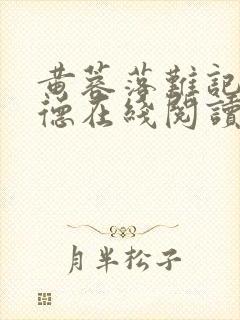 黄蓉落難記
德在綫閱讀
月半松子